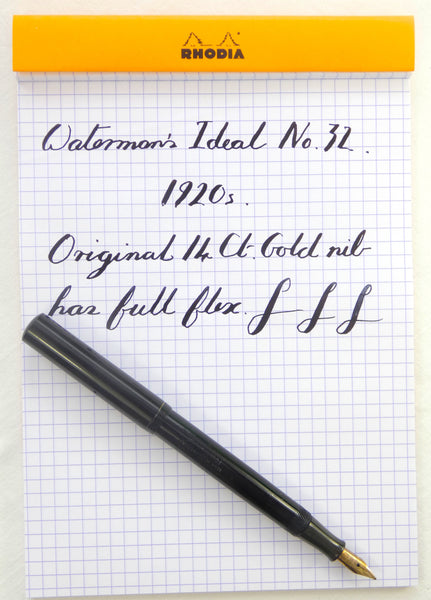 RHODIA
Waterman's Ideal No. 32.
1920s.
Original 14 Ct. Gold nib
has full flex. f f f